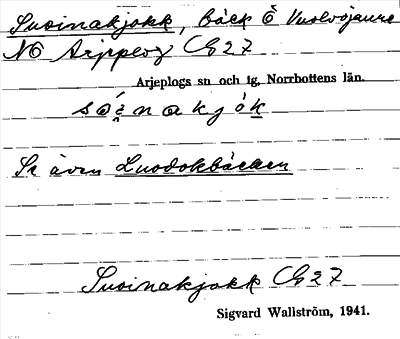 Suoinakjokk, bäck Ö Vuolvojaure
NO Arjeplog Ch 27
Arjeplogs sn och tg, Norrbottens län.
Se även Luodokbäcken
Suoinakjokk Ch 27
Sigvard Wallström, 1941.